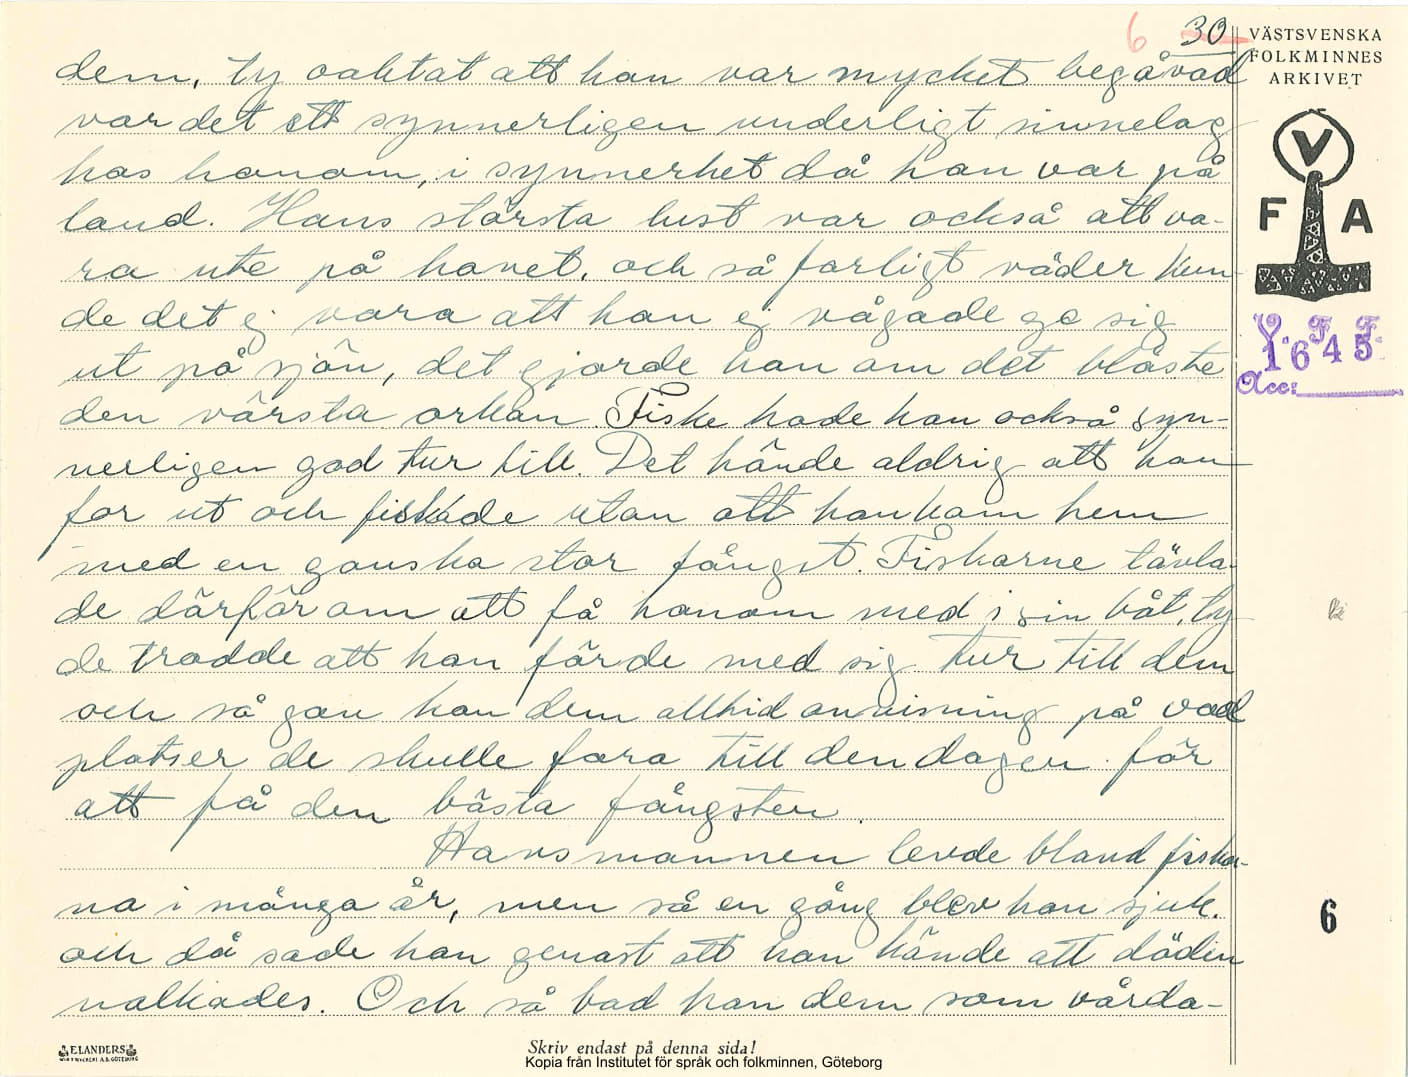 6 30
VÄSTSVENSKA
FOLKMINNES
ARKIVET
V
F A
V. F. F.
1645
Acc:
dem, ty oaktat att han var mycket begåvad
var det ett synnerligen underligt sinnelag
hos honom, i synnerhet då han var på
land. Hans största lust var också att va-
ra ute på havet, och så farligt väder kun-
de det ej vara att han ej vågade ge sig
ut på sjön, det gjorde han om det blåste
den värsta orkan. Fiske hade han också syn-
nerligen god tur till. Det hände aldrig att han
for ut och fiskade utan att han kom hem
med en ganska stor fångst. Fiskarne tävla-
de därför om att få honom med i sin båt, ty
de trodde att han förde med sig tur till dem
och så gav han dem alltid anvisning på vad
platser de skulle fara till den dagen för
att få den bästa fångsten.
Havsmannen levde bland fiskar-
na i många år, men så en gång blev han sjuk.
och då sade han genast att han kände att döden
nalkades. Och så bad han dem som vårda-
6
ELANDERS
Skriv endast på denna sida!
Kopia från Institutet för språk och folkminnen, Göteborg